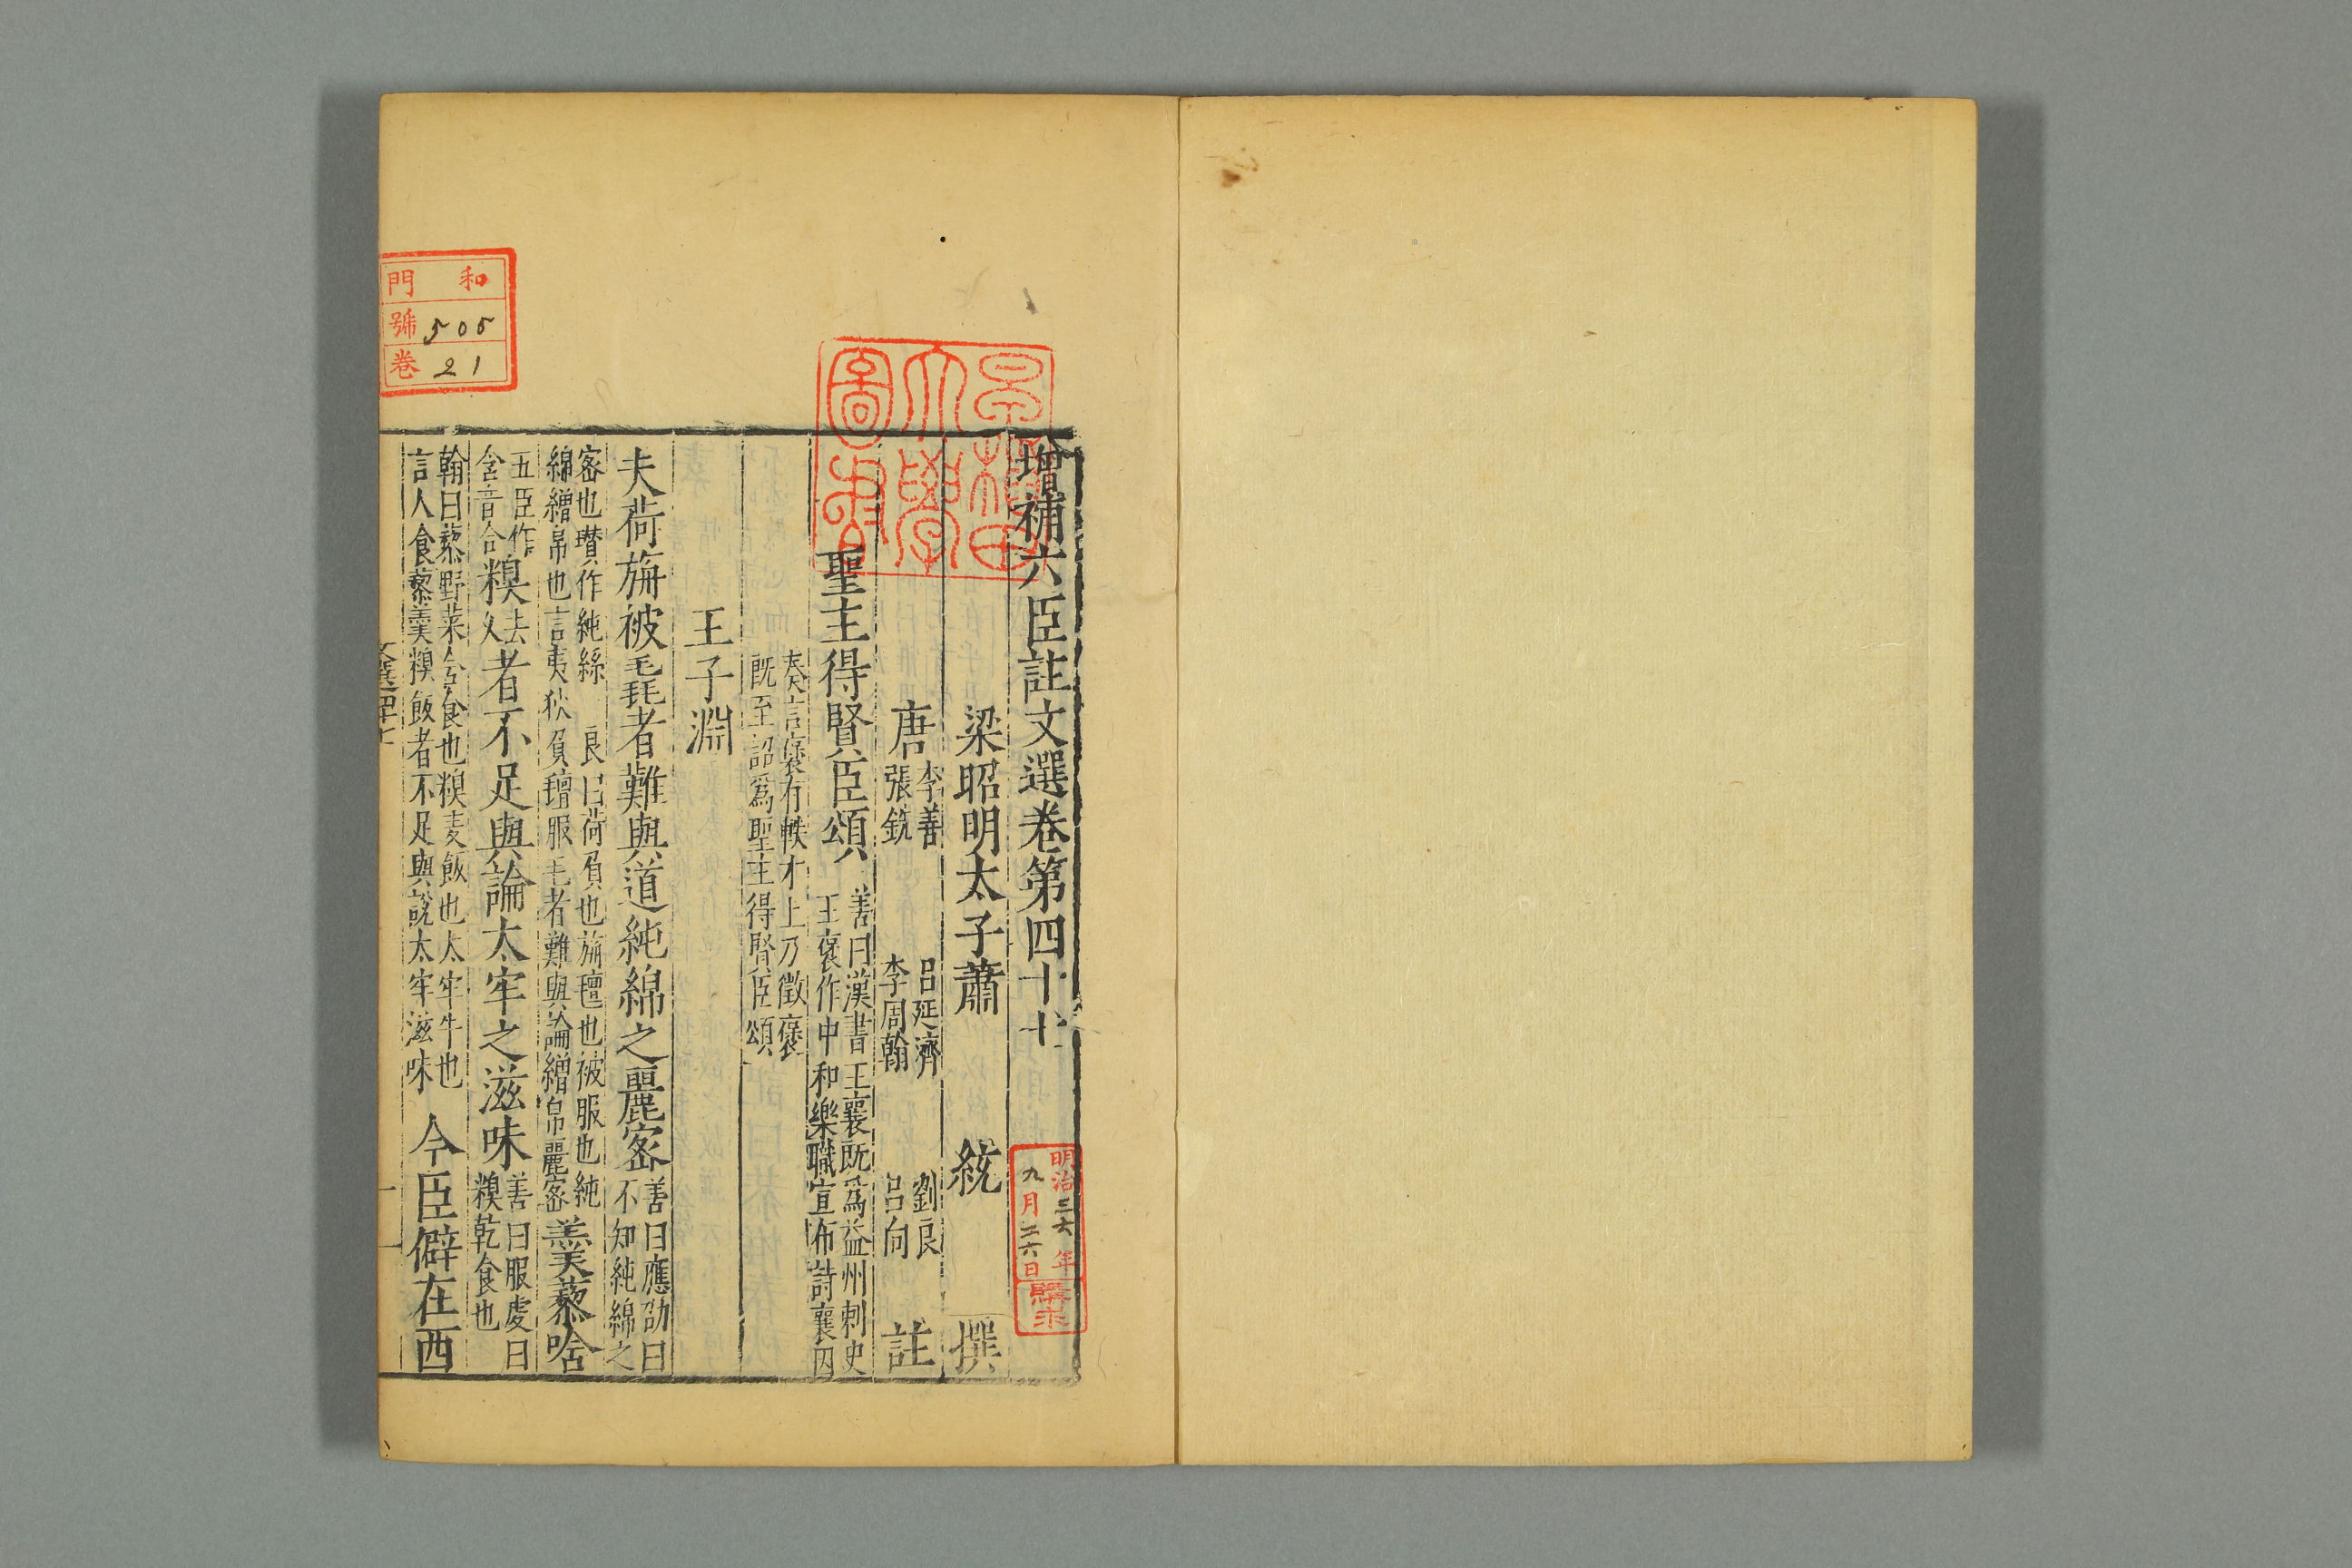 增補六臣註文選卷第四十七
梁昭明太子蕭統撰
唐李善呂延濟劉良
張銑李周翰呂向註
聖主得賢臣頌善曰漢書王襄既爲益州刺史
王褒作中和樂職宣布詩襄因
奏言褒有軼才上乃徵褒
既至詔爲聖主得賢臣頌
王子淵
夫荷旃被毳者難與道純綿之麗密善曰應劭曰
不知純綿之
密也瓚作純綿良曰荷負也旃氊也被服也純
綿繒帛也言夷狄負氊服毛者難與論繒帛麗密羹藜唅
五臣作
含音合糗去
久者不足與論太牢之滋味善曰服虔曰
糗乾食也
翰曰藜野菜含食也糗麦飯也太牢牛也
言人食藜羹糗飯者不足與說太牢滋味今臣僻在西
文選四十七
一
早稻田大學圖書
明治三六年
九月二六日
購求
和門
號505
卷21